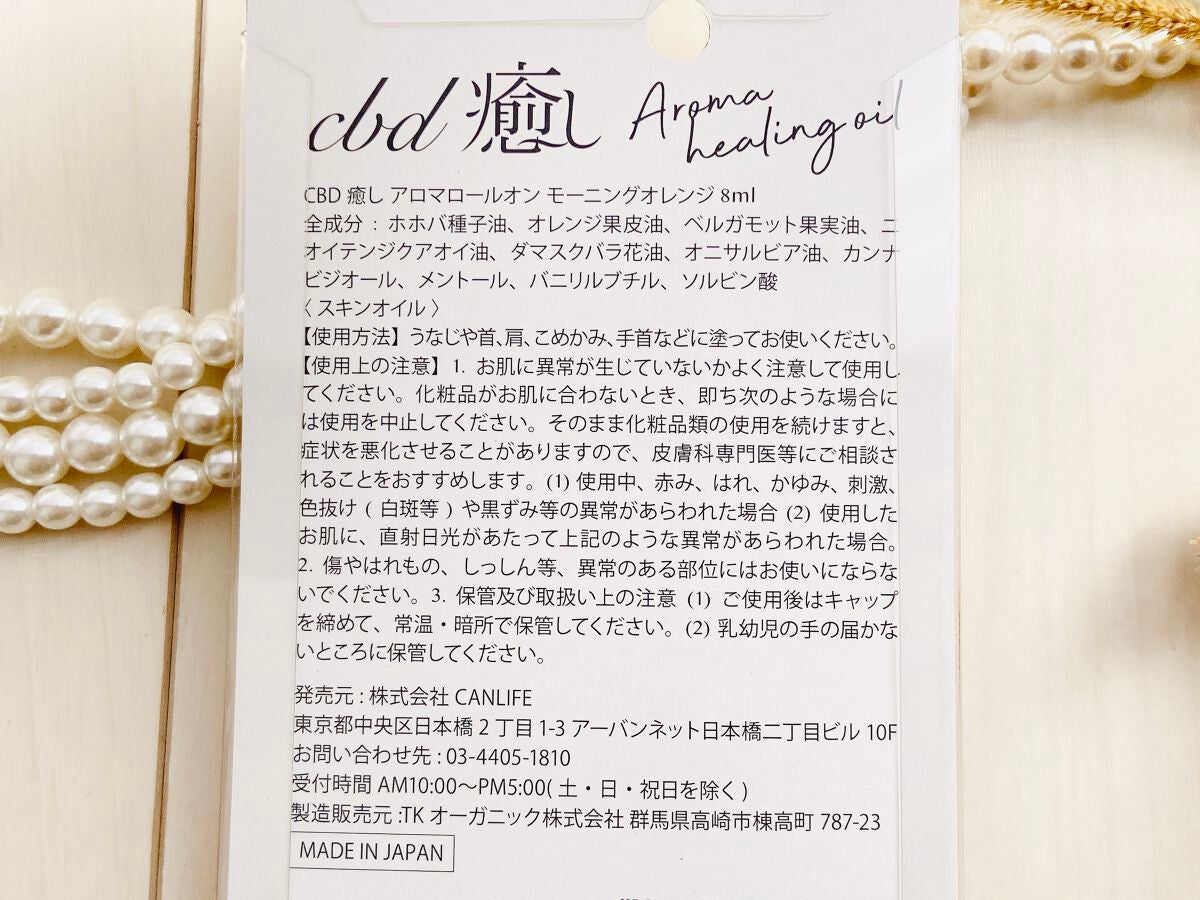 cbd 癒し Aroma healing oil
CBD 癒し アロマロールオン モーニングオレンジ 8ml
全成分 : ホホバ種子油、オレンジ果皮油、ベルガモット果実油、ニ
オイテンジクアオイ油、ダマスクバラ花油、オニサルビア油、カンナ
ビジオール、メントール、バニリルブチル、ソルビン酸
〈 スキンオイル 〉
【使用方法】うなじや首、肩、こめかみ、手首などに塗ってお使いください。
【使用上の注意】1. お肌に異常が生じていないかよく注意して使用し
てください。化粧品がお肌に合わないとき、即ち次のような場合に
は使用を中止してください。そのまま化粧品類の使用を続けますと、
症状を悪化させることがありますので、皮膚科専門医等にご相談さ
れることをおすすめします。(1) 使用中、赤み、はれ、かゆみ、刺激、
色抜け ( 白斑等 ) や黒ずみ等の異常があらわれた場合 (2) 使用した
お肌に、直射日光があたって上記のような異常があらわれた場合。
2. 傷やはれもの、しっしん等、異常のある部位にはお使いにならな
いでください。3. 保管及び取扱い上の注意 (1) ご使用後はキャップ
を締めて、常温・暗所で保管してください。(2) 乳幼児の手の届かな
いところに保管してください。
発売元 : 株式会社 CANLIFE
東京都中央区日本橋 2 丁目 1-3 アーバンネット日本橋二丁目ビル 10F
お問い合わせ先 : 03-4405-1810
受付時間 AM10:00〜PM5:00( 土・日・祝日を除く )
製造販売元 :TK オーガニック株式会社 群馬県高崎市棟高町 787-23
MADE IN JAPAN